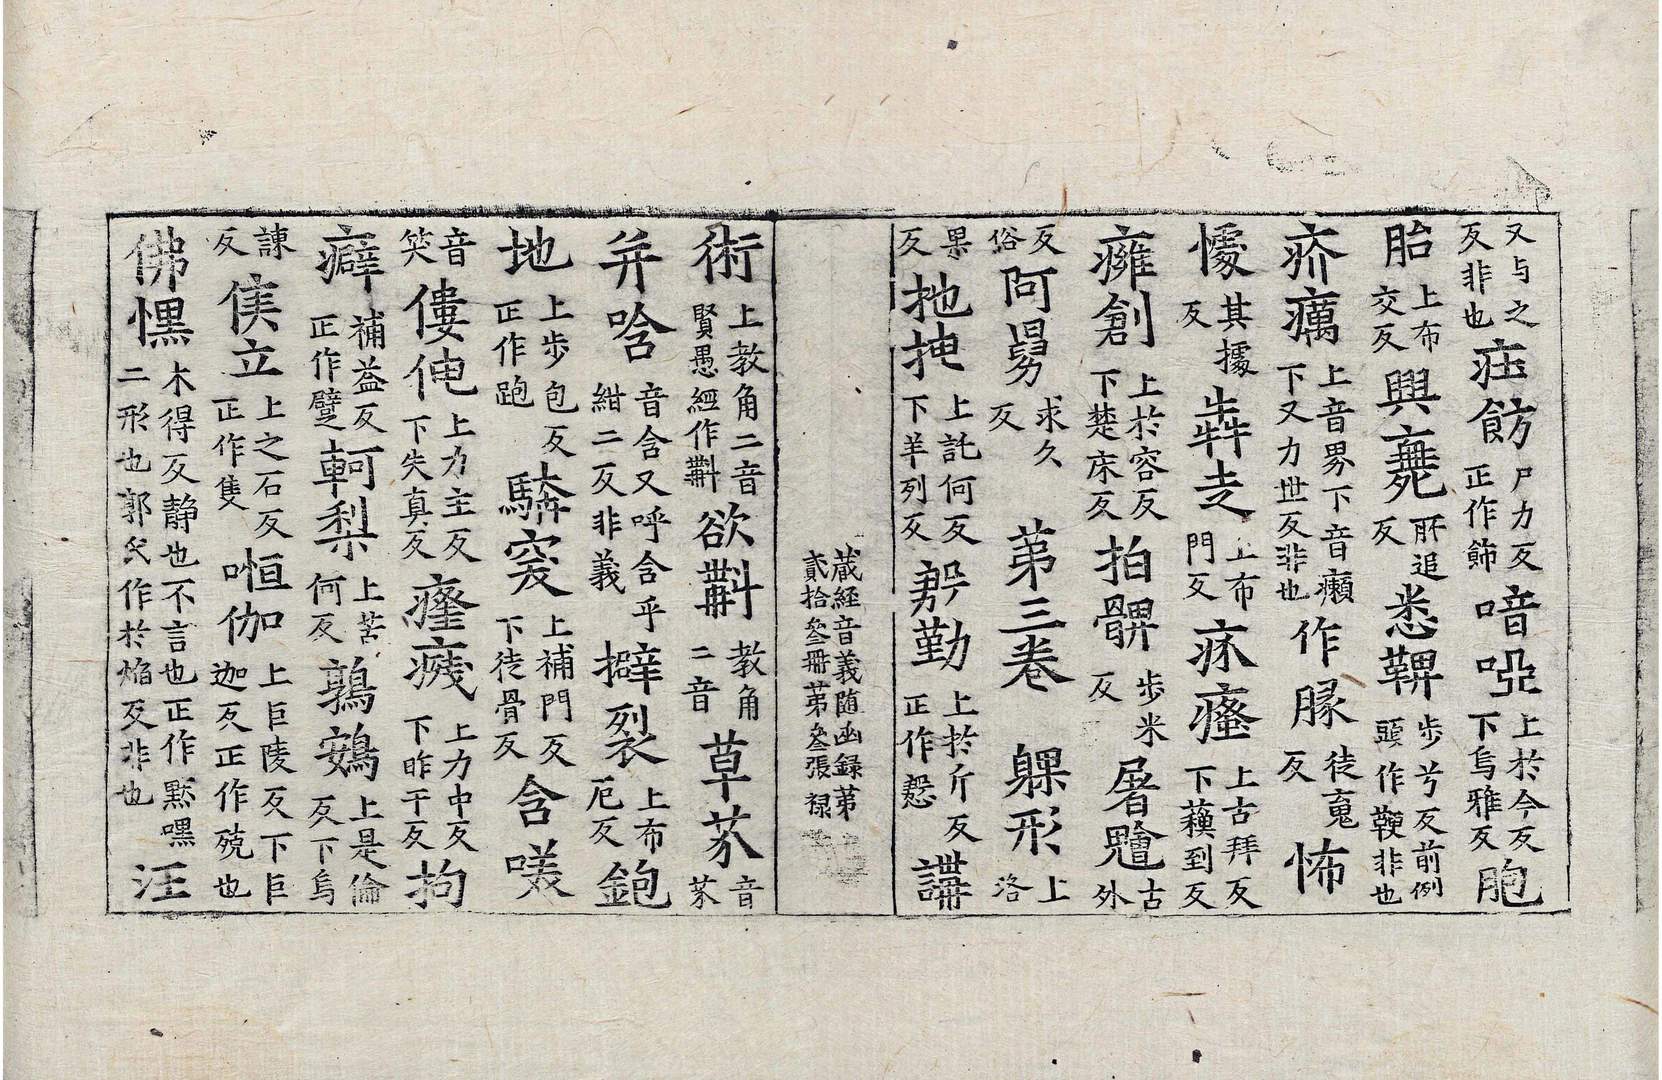 又与之反非也𤵜飭尸力反正作飾喑啞上於今反下烏雅反胞
胎上布交反興麂所追反悉鞞步兮反前例頭作鞕非也
疥癘上音界下音癩下又力世反非也作𦜕徒嵬反怖
懅其據反犇走上布門反疥瘙上古拜反下蘓到反
癰創上於容反下楚床反拍髀步米反屠膾古外
反俗阿舅求久反第三卷躶形上洛
果反扡抴上託何反下羊列反躬勤上於斤反正作慇講
蔵経音義随函録第貳拾叄冊第叄張禄
術上教角二音賢愚經作𣂏欲𣂏教角二音草芥音芥
并唅音含又呼含乎紺二反非義擗裂上布厄反鉋
地上步包反正作跑驎突上補門反下徒骨反含嘆
音笑僂伸上力主反下失真反癃殘上力中反下昨干反拘
癖補益反正作躄軻梨上苦何反鶉鴳上是倫反下烏
諫反隻立上之石反正作隻㘽伽上巨陵反下巨迦反正作殑也
佛嘿木得反静也不言也正作默嘿二形也郭氏作於焰反非也汪